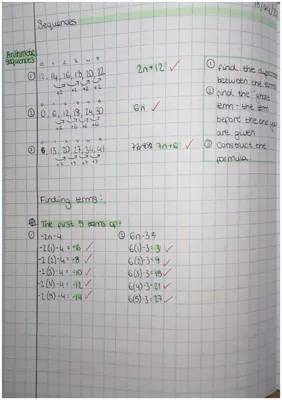 Sequences
Arithmetic
sequences
0 1 2 3 4 5
① 12, 14, 16, 18, 20, 22    2n+12 ✓
+2 +2 +2 +2
① find the
between the terms
0 1 2 3 4 5
② 0, 6, 12, 18, 24, 30    6n ✓
+6 +6 +6 +6
② find the
term - the term
before the one
are given
③ construct the
formula
③ 6, 13, 20, 27, 34, 41    7n+6 ✓
Finding terms:
The first 5 terms of:
① -2n-4    ② 6n-3
-2(1)-4 = -6 ✓    6(1)-3 = 3 ✓
-2(2)-4 = -8 ✓    6(2)-3 = 9 ✓
-2(3)-4 = -10 ✓    6(3)-3 = 15 ✓
-2(4)-4 = -12 ✓    6(4)-3 = 21 ✓
-2(5)-4 = -14 ✓    6(5)-3 = 27 ✓